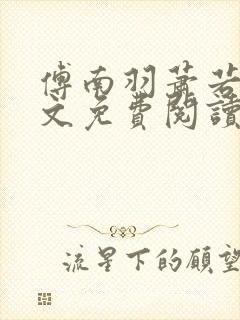 傅南羽蕭若
文免費閱讀
流星下的願望